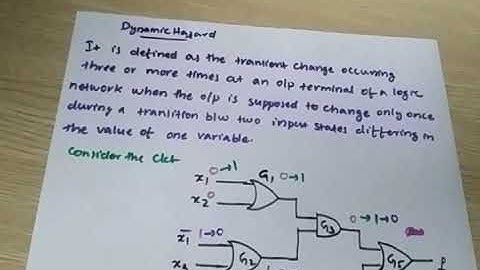 Dynamic Hazard
It is defined as the transient change occurring
three or more times at an o/p terminal of a logic
network when the o/p is supposed to change only once
during a transition b/w two input states differing in
the value of one variable.
Consider the Ckt
x₁ 0→1 G₁ 0→1
x₂ 0
G₃ 0→1→0
x̄₁ 1→0
G₂ G₅ f